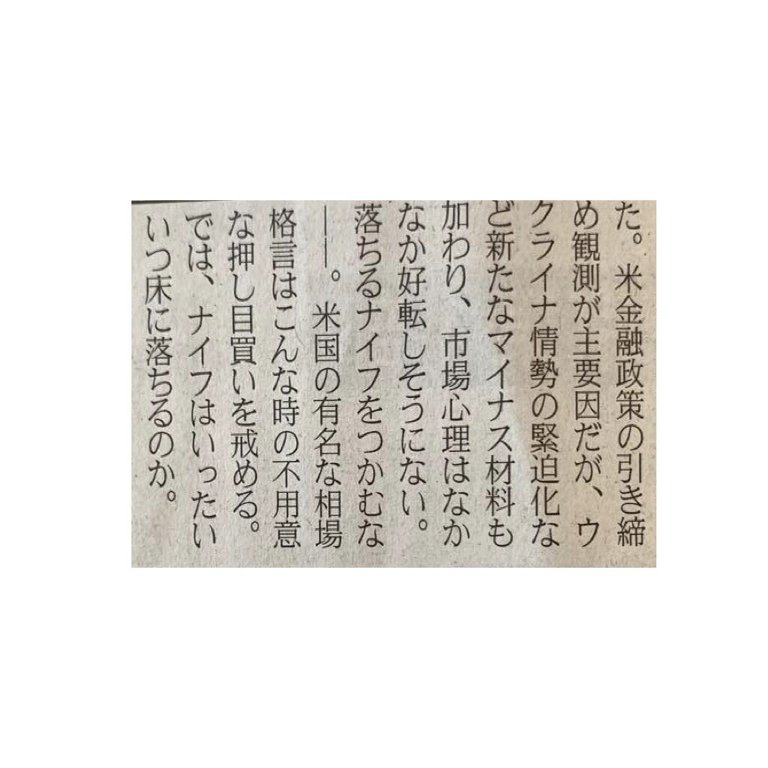 た。米金融政策の引き締
め観測が主要因だが、ウ
クライナ情勢の緊迫化な
ど新たなマイナス材料も
加わり、市場心理はなか
なか好転しそうにない。
落ちるナイフをつかむな
――。米国の有名な相場
格言はこんな時の不用意
な押し目買いを戒める。
では、ナイフはいったい
いつ床に落ちるのか。